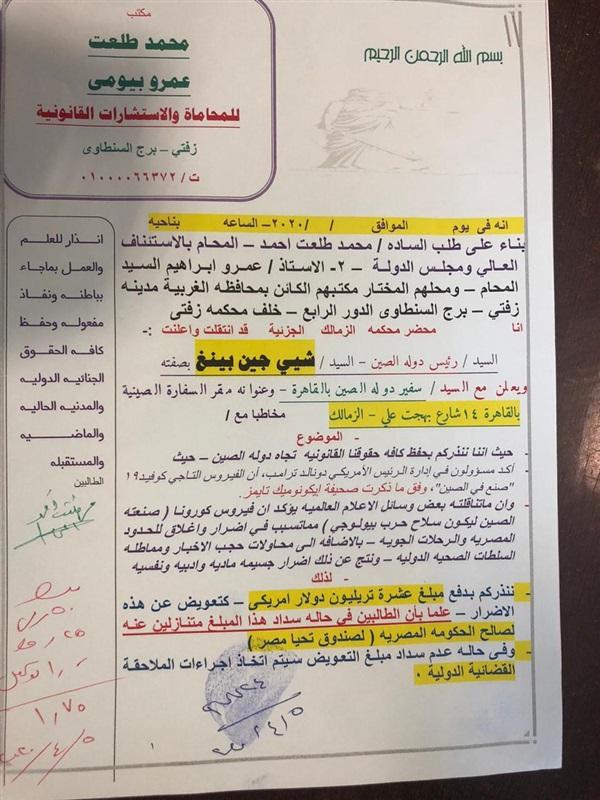 مكتب
محمد طلعت
عمرو بيومى
للمحاماة والاستشارات القانونية
زفتي – برج السنطاوى
ت / ٠١٠٠٠٠٦٦٣٧٢
بسم الله الرحمن الرحيم
انه فى يوم الموافق / /٢٠٢٠– الساعه بناحيه
بناء على طلب الساده / محمد طلعت احمد – المحام بالاستئناف
العالي ومجلس الدولة – ٢- الاستاذ / عمرو ابراهيم السيد
المحام – ومحلهم المختار مكتبهم الكائن بمحافظه الغربية مدينه
زفتي – برج السنطاوى الدور الرابع – خلف محكمه زفتى
انا محضر محكمه الزمالك الجزئية قد انتقلت واعلنت :-
السيد / رئيس دوله الصين – السيد / شيي جين بينغ بصفته
ويعلن مع السيد / سفير دوله الصين بالقاهرة – وعنوانه مقر السفارة الصينية
بالقاهرة ١٤ شارع بهجت علي – الزمالك مخاطبا مع /
- الموضوع
- حيث اننا ننذركم بحفظ كافه حقوقنا القانونيه تجاه دوله الصين – حيث
- أكد مسؤولون في إدارة الرئيس الأمريكي دونالد ترامب، أن الفيروس التاجي كوفيد١٩
"صنع في الصين"، وفق ما ذكرت صحيفة إيكونوميك تايمز.
- وان ماتناقلته بعض وسائل الاعلام العالميه يؤكد ان فيروس كورونا ( صنعته
الصين ليكون سلاح حرب بيولوجي ) مماتسبب في اضرار واغلاق للحدود
المصريه والرحلات الجويه – بالاضافه الى محاولات حجب الاخبار ومماطله
السلطات الصحيه الدوليه – ونتج عن ذلك اضرار جسيمه ماديه وادبيه ونفسيه
- لذلك
- ننذركم بدفع مبلغ عشرة تريليون دولار امريكى – كتعويض عن هذه
الاضرار – علما بأن الطالبين في حاله سداد هذا المبلغ متنازلين عنه
لصالح الحكومه المصريه ( لصندوق تحيا مصر )
- وفى حاله عدم سداد مبلغ التعويض سيتم اتخاذ اجراءات الملاحقة
القضائية الدولية ٠
١
انذار للعلم
والعمل بماجاء
بباطنه ونفاذ
مفعوله وحفظ
كافه الحقوق
الجنائيه الدوليه
والمدنيه الحاليه
والماضيه
والمستقبله
الطالبين